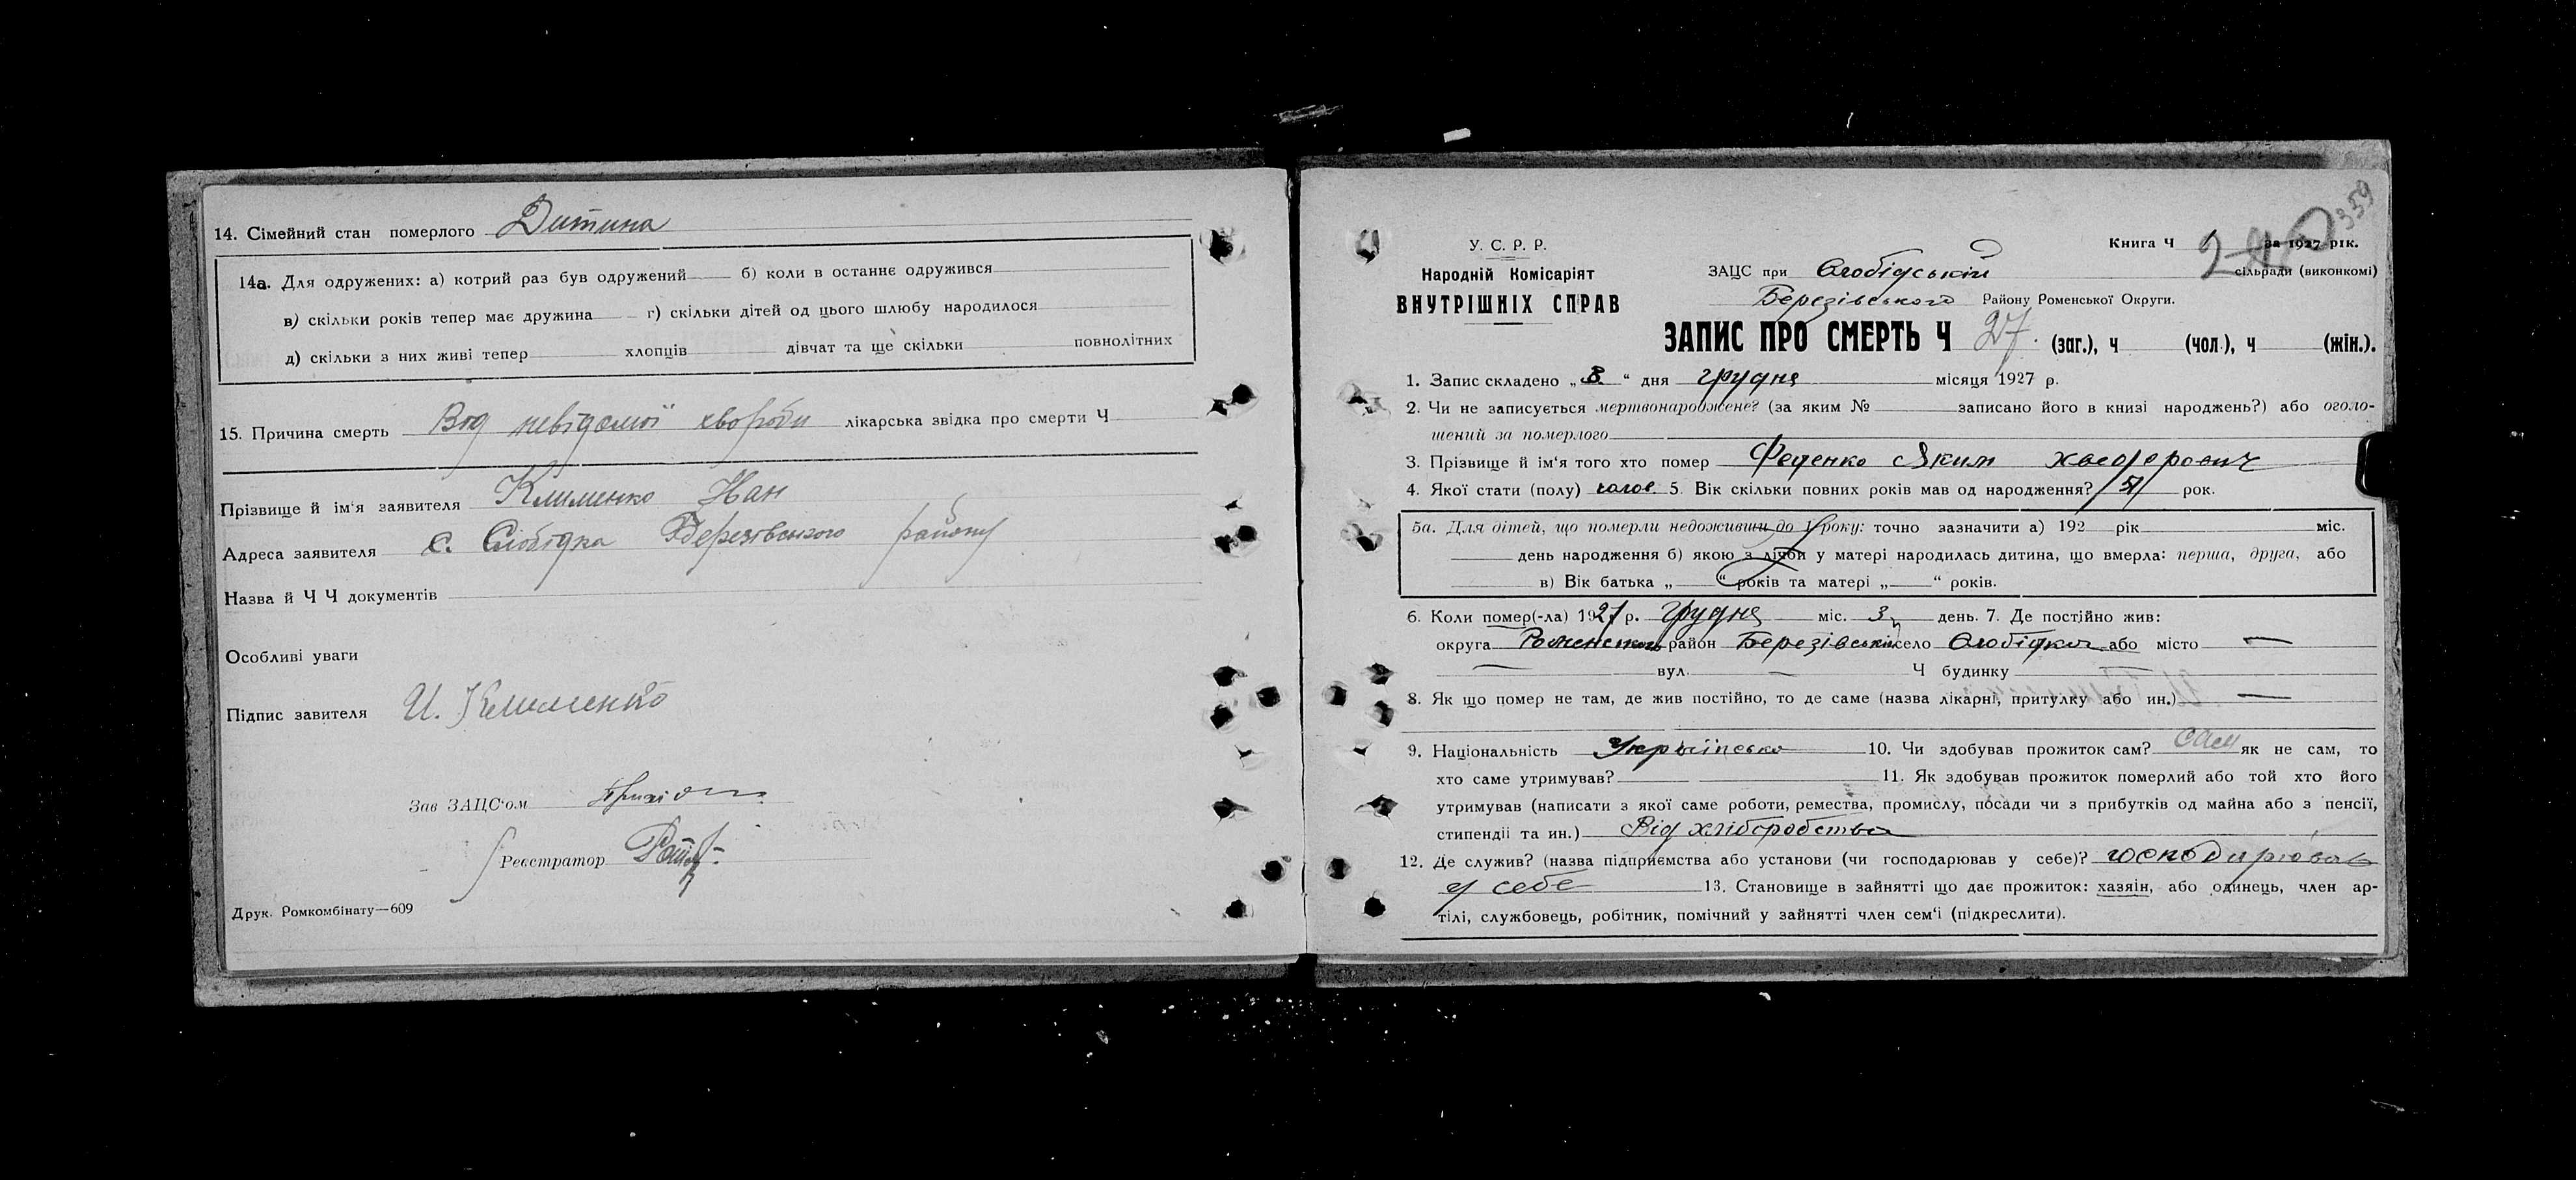 14. Сімейний стан померлого Дитина
14а. Для одружених: а) котрий раз був одружений б) коли в останнє одружився
в) скільки років тепер має дружина г) скільки дітей од цього шлюбу народилося
д) скільки з них живі тепер хлопців дівчат та ще скільки повнолітних
15. Причина смерть Від невідомої хвороби лікарська звідка про смерти Ч
Прізвище й ім'я заявителя Клименко Іван
Адреса заявителя с. Слобідка Березівського району
Назва й Ч Ч документів
Особливі уваги
Підпис завителя И. Клименко
Зав ЗАЦС'ом
Реєстратор
Друк. Ромкомбінату—609
359
У. С. Р. Р.
Народній Комісаріят
ВНУТРІШНІХ СПРАВ
Книга Ч 2 за 1927 рік.
ЗАЦС при Слобідській сільради (виконкомі)
Березівського Району Роменської Округи.
ЗАПИС ПРО СМЕРТЬ Ч 27. (заг.), ч (чол.), ч (жін.).
1. Запис складено „8" дня грудня місяця 1927 р.
2. Чи не записується мертвонароджене? (за яким № записано його в книзі народжень?) або оголо-
шений за померлого
3. Прізвище й ім'я того хто помер Феценко Яким
4. Якої стати (полу) чолов. 5. Вік скільки повних років мав од народження? 51 рок.
5а. Для дітей, що померли недоживши до 1 року: точно зазначити а) 192 рік міс.
день народження б) якою з лічби у матері народилась дитина, що вмерла: перша, друга, або
в) Вік батька „ " років та матері „ " років.
6. Коли помер(-ла) 1927 р. грудня міс. 3 день. 7. Де постійно жив:
округа Роменська район Березівський село Слобідка або місто —
вул. Ч будинку
8. Як що помер не там, де жив постійно, то де саме (назва лікарні, притулку або ин.) —
9. Національність Україінсько 10. Чи здобував прожиток сам? сам як не сам, то
хто саме утримував? 11. Як здобував прожиток померлий або той хто його
утримував (написати з якої саме роботи, ремества, промислу, посади чи з прибутків од майна або з пенсії,
стипендії та ин.) Від хліборобства
12. Де служив? (назва підприємства або установи (чи господарював у себе)? господарював
у себе 13. Становище в зайнятті що дає прожиток: хазяїн, або одинець, член ар-
тілі, службовець, робітник, помічний у зайнятті член сем'ї (підкреслити).